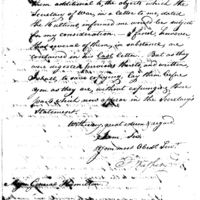 them additional to the objects which the
Secretary of War, in a letter to me, dated
the 16 ulto, informed me would be subject
for my consideration — I find, however
that several of them, in substance, are
contained in his last letter. But as they
were digested previous thereto, and written
I shall to save copying, lay them before
you as they are, without expunging those
parts which now appear in the Secretary's
Statement.
With very great esteem & regard
I am Sir
Your most Obedt Serv.
Major General Hamilton